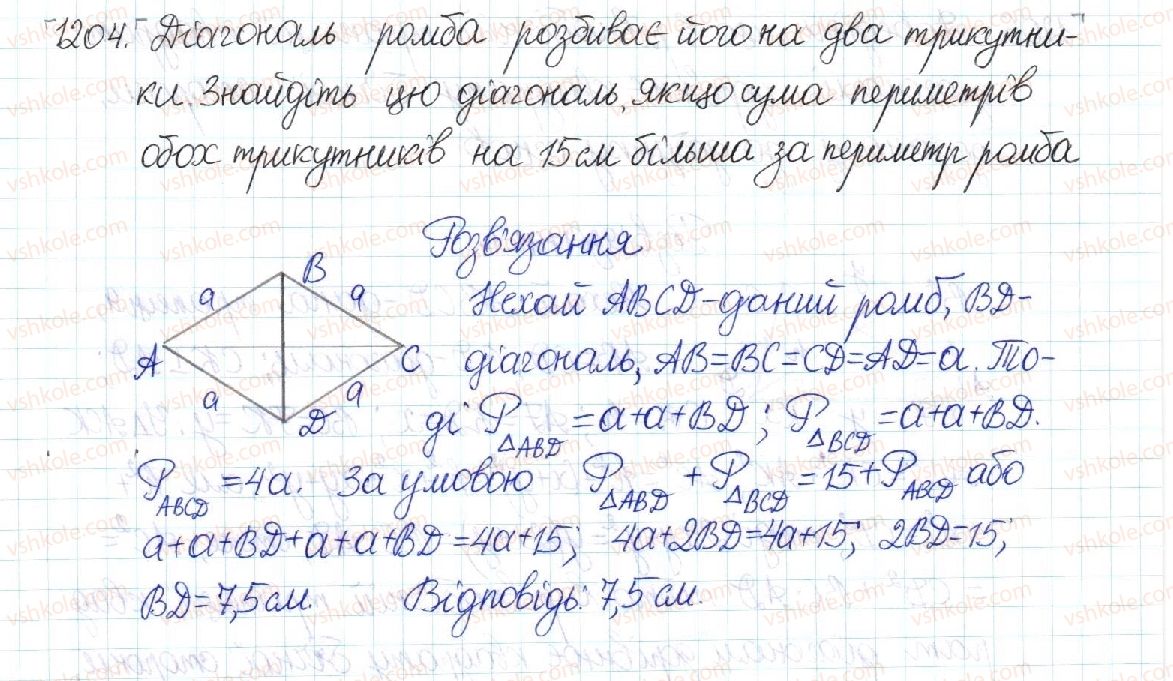 1204. Діагональ ромба розбиває його на два трикутни-
ки. Знайдіть цю діагональ, якщо сума периметрів
обох трикутників на 15 см більша за периметр ромба
Розв'язання
B
a a
A C
a a
D
Нехай ABCD - даний ромб, BD -
діагональ, AB = BC = CD = AD = a. То-
ді P△ABD = a + a + BD; P△BCD = a + a + BD.
PABCD = 4a. За умовою P△ABD + P△BCD = 15 + PABCD або
a + a + BD + a + a + BD = 4a + 15; 4a + 2BD = 4a + 15; 2BD = 15;
BD = 7,5 см. Відповідь: 7,5 см.
vshkole.com